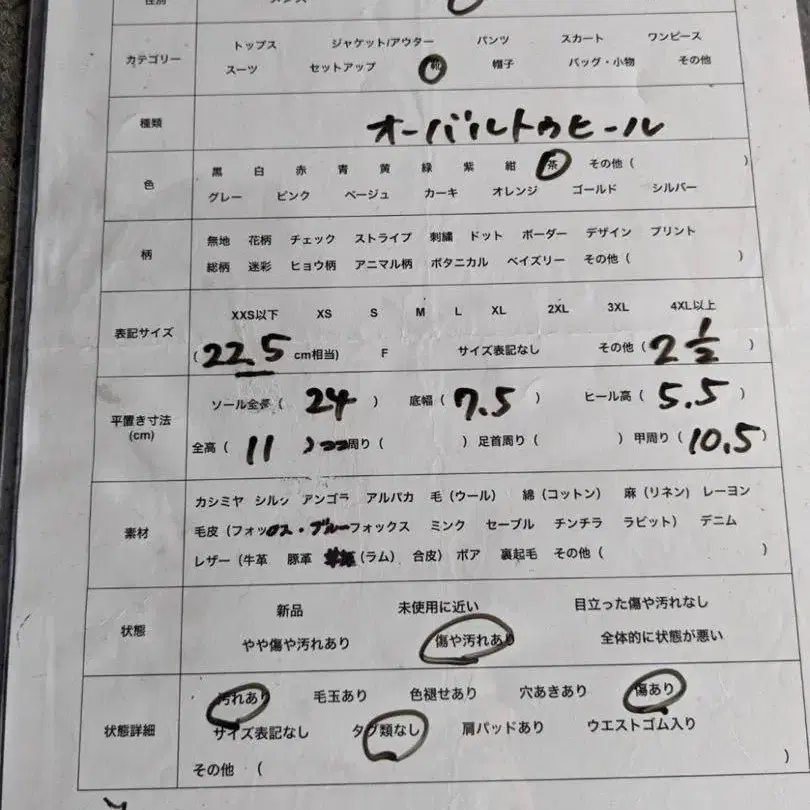 性別 メンズ
カテゴリー トップス ジャケット/アウター パンツ スカート ワンピース
スーツ セットアップ 靴 帽子 バッグ・小物 その他
種類 オーバルトゥヒール
色 黒 白 赤 青 黄 緑 紫 紺 茶 その他 ( )
グレー ピンク ベージュ カーキ オレンジ ゴールド シルバー
柄 無地 花柄 チェック ストライプ 刺繍 ドット ボーダー デザイン プリント
総柄 迷彩 ヒョウ柄 アニマル柄 ボタニカル ペイズリー その他 ( )
表記サイズ XXS以下 XS S M L XL 2XL 3XL 4XL以上
( 22.5 cm相当) F サイズ表記なし その他 ( 2 1/2 )
平置き寸法 (cm) ソール全長 ( 24 ) 底幅 ( 7.5 ) ヒール高 ( 5.5 )
全高 ( 11 ) 周り ( ) 足首周り ( ) 甲周り ( 10.5 )
素材 カシミヤ シルク アンゴラ アルパカ 毛 (ウール) 綿 (コットン) 麻 (リネン) レーヨン
毛皮 (フォックス・ブルーフォックス ミンク セーブル チンチラ ラビット) デニム
レザー (牛革 豚革 (ラム) 合皮) ボア 裏起毛 その他 ( )
状態 新品 未使用に近い 目立った傷や汚れなし
やや傷や汚れあり 傷や汚れあり 全体的に状態が悪い
状態詳細 汚れあり 毛玉あり 色褪せあり 穴あきあり 傷あり
サイズ表記なし タグ類なし 肩パッドあり ウエストゴム入り
その他 ( )